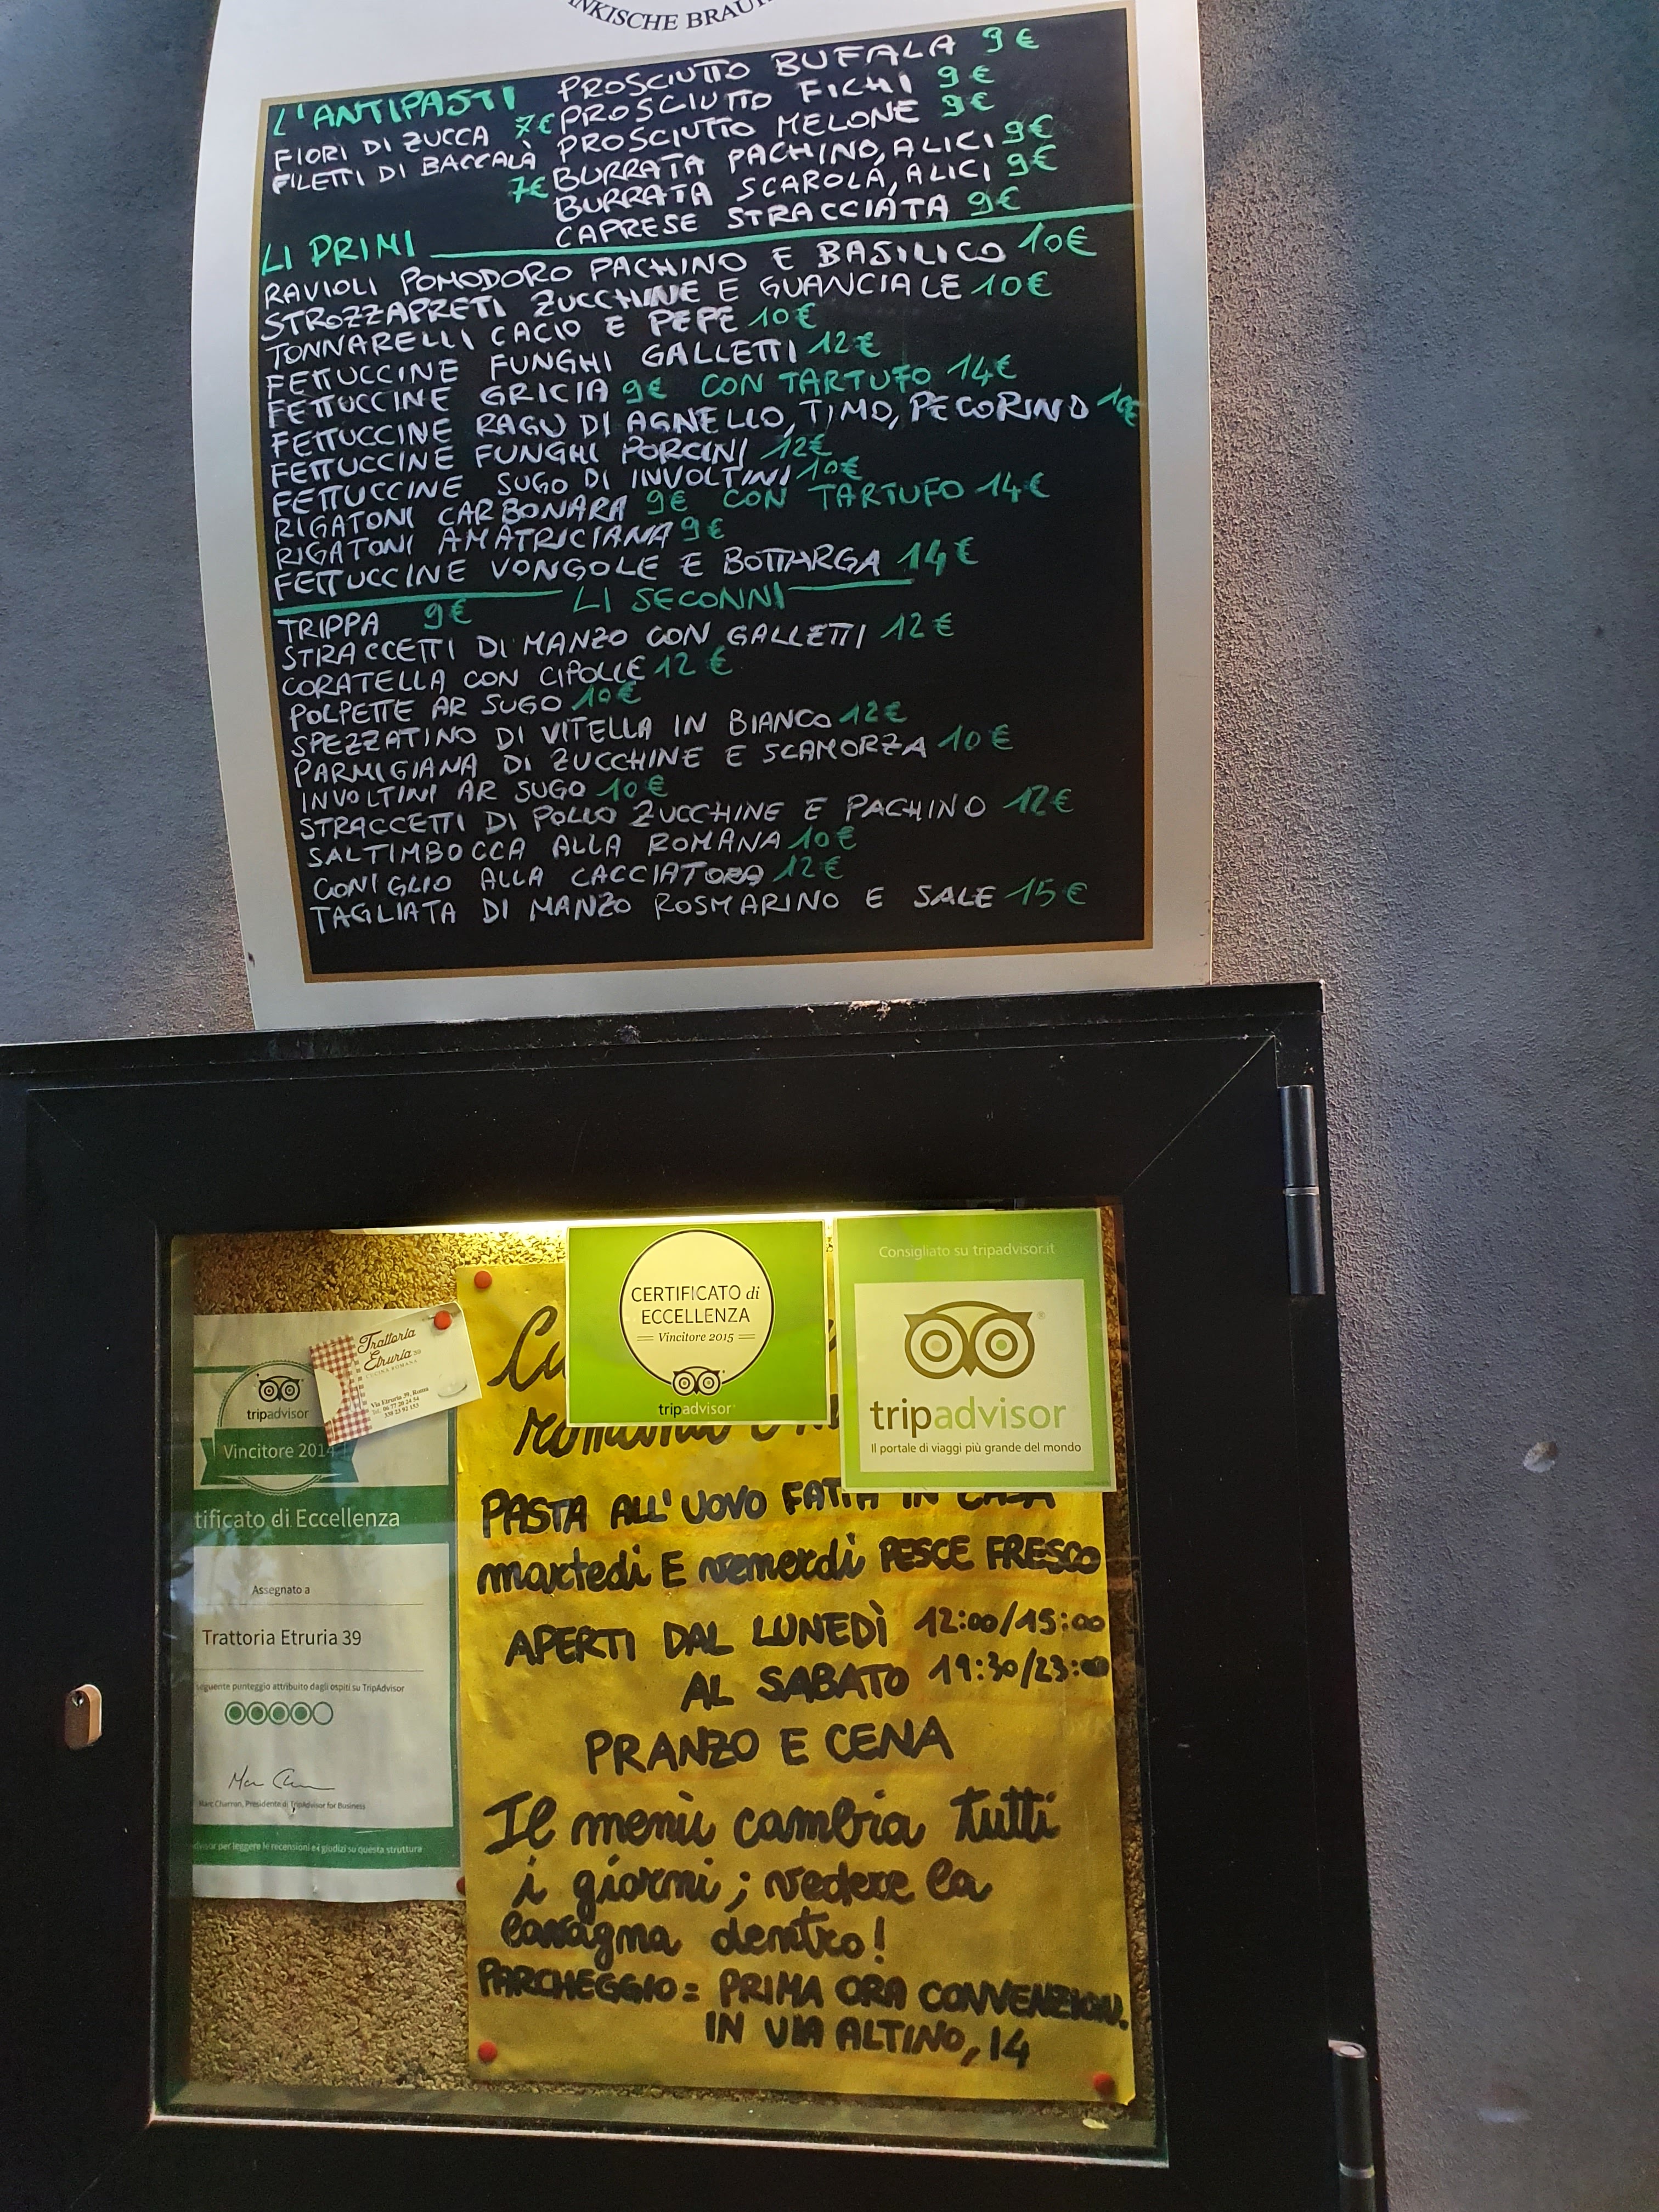 NKISCHE
L'ANTIPASTI
FIORI DI ZUCCA 7€
FILETTI DI BACCALÀ
7€
PROSCIUTTO BUFALA 9€
PROSCIUTTO FICHI 9€
PROSCIUTTO MELONE 9€
BURRATA PACHINO, ALICI 9€
BURRATA SCAROLA, ALICI 9€
CAPRESE STRACCIATA 9€
LI PRIMI
RAVIOLI POMODORO PACHINO E BASILICO 10€
STROZZAPRETI ZUCCHINE E GUANCIALE 10€
TONNARELLI CACIO E PEPE 10€
FETTUCCINE FUNGHI GALLETTI 12€
FETTUCCINE GRICIA 9€ CON TARTUFO 14€
FETTUCCINE RAGU DI AGNELLO, TIMO, PECORINO 10€
FETTUCCINE FUNGHI PORCINI 12€
FETTUCCINE SUGO DI INVOLTINI 10€
RIGATONI CARBONARA 9€ CON TARTUFO 14€
RIGATONI AMATRICIANA 9€
FETTUCCINE VONGOLE E BOTTARGA 14€
LI SECONNI
TRIPPA 9€
STRACCETTI DI MANZO CON GALLETTI 12€
CORATELLA CON CIPOLLE 12€
POLPETTE AR SUGO 10€
SPEZZATINO DI VITELLA IN BIANCO 12€
PARMIGIANA DI ZUCCHINE E SCAMORZA 10€
INVOLTINI AR SUGO 10€
STRACCETTI DI POLLO ZUCCHINE E PACHINO 12€
SALTIMBOCCA ALLA ROMANA 10€
CONIGLIO ALLA CACCIATORA 12€
TAGLIATA DI MANZO ROSMARINO E SALE 15€
CERTIFICATO di
ECCELLENZA
Vincitore 2015
tripadvisor
Consigliato su tripadvisor.it
tripadvisor
Il portale di viaggi più grande del mondo
Trattoria
Etruria 39
CUCINA ROMANA
Via Etruria 39, Roma
Tel. 06 77 20 24 54
338 23 92 153
tripadvisor
Vincitore 2014
tificato di Eccellenza
Assegnato a
Trattoria Etruria 39
eguente punteggio attribuito dagli ospiti su TripAdvisor
Marc Charron, Presidente di TripAdvisor for Business
dvisor per leggere le recensioni e i giudizi su questa struttura
PASTA ALL'UOVO FATTA IN CASA
martedi E venerdi PESCE FRESCO
APERTI DAL LUNEDÌ 12:00/15:00
AL SABATO 19:30/23:00
PRANZO E CENA
Il menù cambia tutti
i giorni; vedere la
lavagna dentro!
PARCHEGGIO = PRIMA ORA CONVENZION.
IN VIA ALTINO, 14